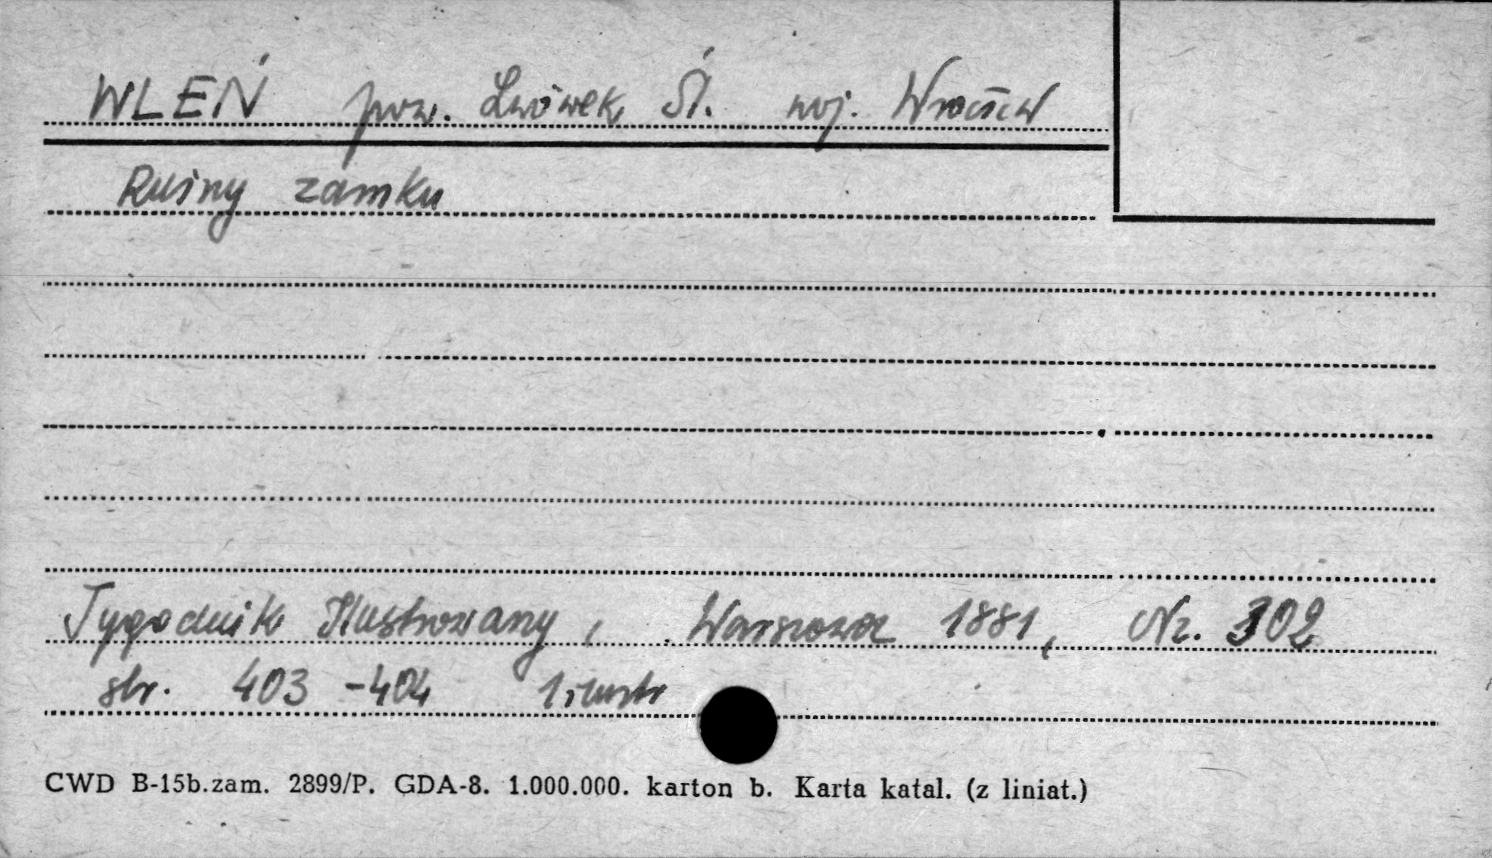 WLEŃ pow. Lwówek Śl. woj. Wrocław
Ruiny zamku
Tygodnik Ilustrowany, Warszawa 1881, Nr. 302
str. 403-404 1 ilustr
CWD B-15b.zam. 2899/P. GDA-8. 1.000.000. karton b. Karta katal. (z liniat.)